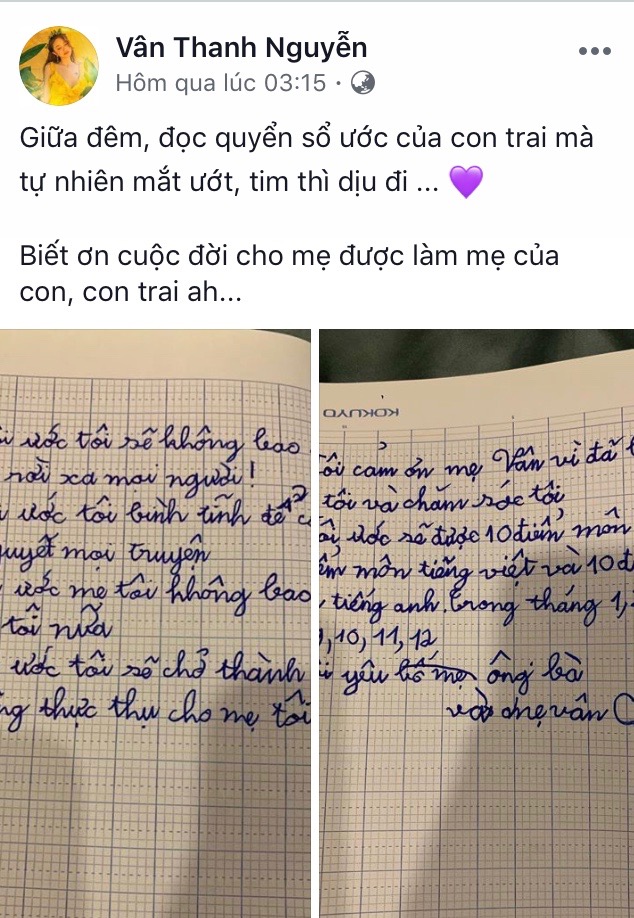 Vân Thanh Nguyễn
Hôm qua lúc 03:15
Giữa đêm, đọc quyển sổ ước của con trai mà
tự nhiên mắt ướt, tim thì dịu đi ...
Biết ơn cuộc đời cho mẹ được làm mẹ của
con, con trai ah...
ước tôi sẽ không bao
rời xa mọi người!
ước tôi bình tĩnh để
mọi truyện
ước mẹ tôi không bao
tôi nữa
ước tôi sẽ chở thành
thực thụ cho mẹ tôi
KOKUYO
cảm ơn mẹ Vân vì đã
tôi và chăm sóc tôi
ước sẽ được 10 điểm môn
môn tiếng việt và 10
tiếng anh trong tháng 1,
10, 11, 12
yêu bố mẹ ông bà
và mẹ vân